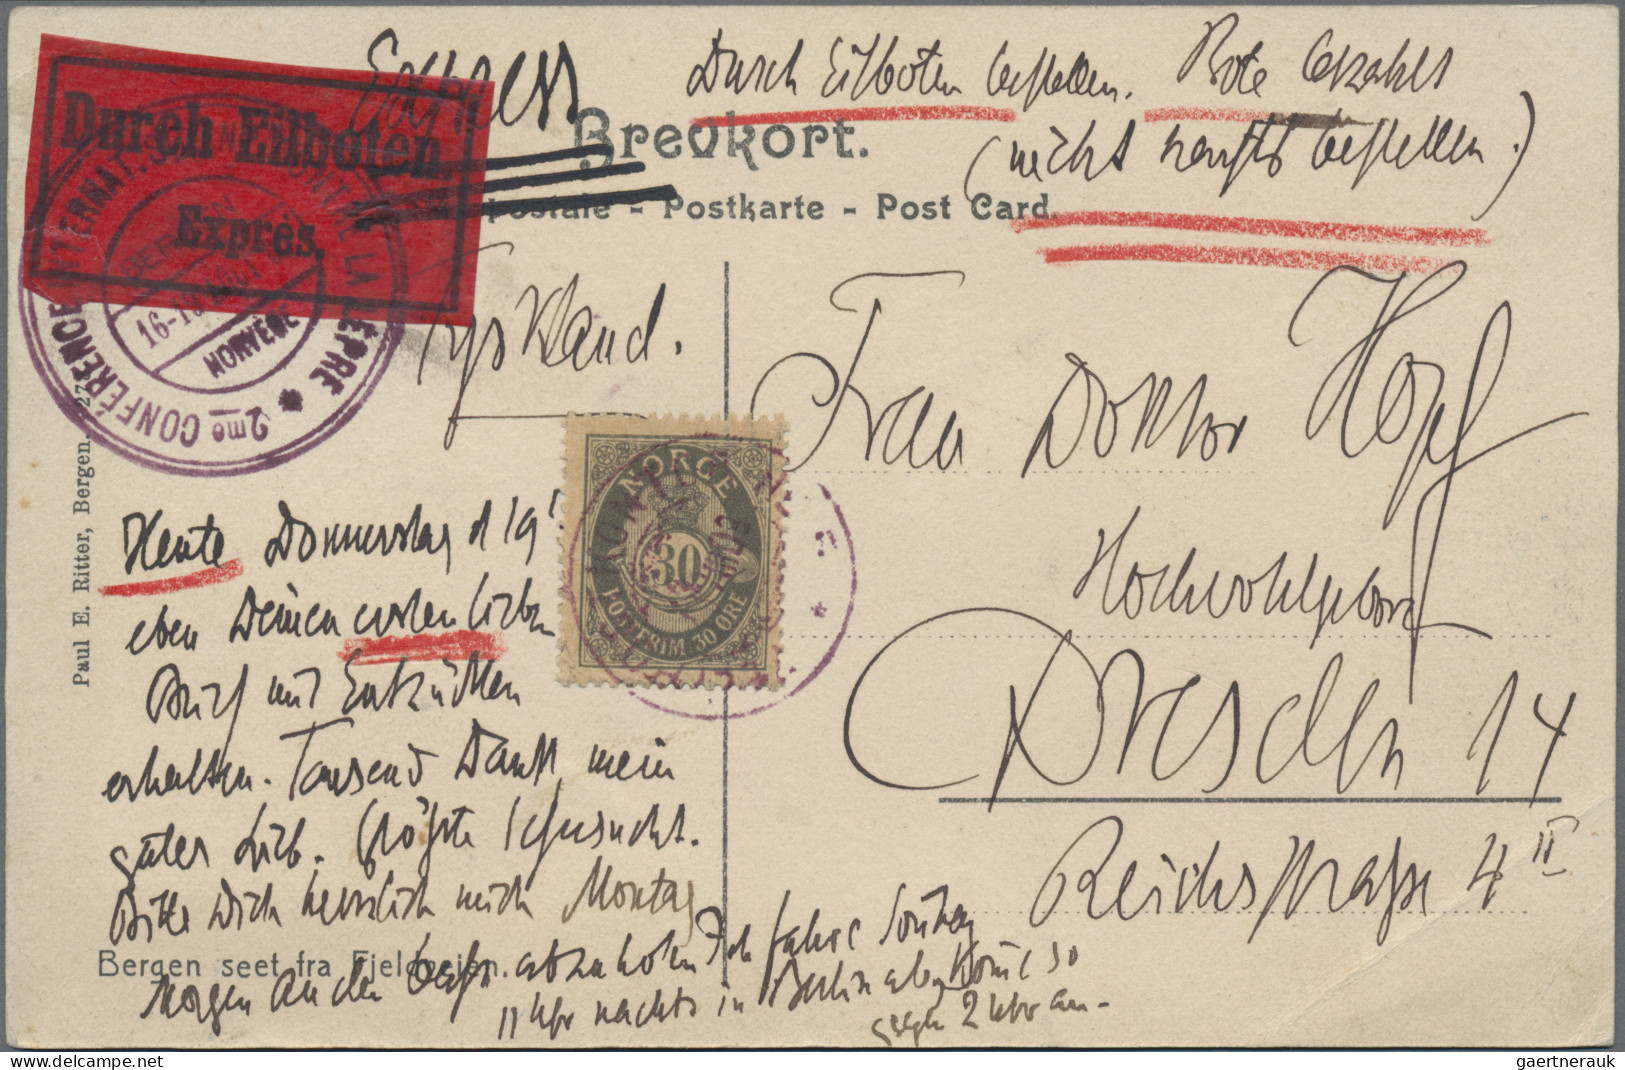 Express
Durch Eilboten bestellen. Bote bezahlt
(nicht nachts bestellen.)
Durch Eilboten.
Expres.
Brevkort.
postale - Postkarte - Post Card.
2me CONFÉRENCE INTERNAT. LA LÈPRE
BERGEN
16-1
NORVÈGE
Tyskland.
NORGE
30
POSTFRIM 30 ØRE
Frau Doktor Hopf
Hochwohlgeboren
Dresden 14
Reichsstrasse 4 II
Heute Donnerstag d 19
eben Deinen ersten lieben
Brief mit Entzücken
erhalten. Tausend Dank, mein
gutes Lieb. Größte Sehnsucht.
Bitte Dich herzlich mich Montag
Morgen an der abzuholen Ich fahre Sonntag
11 Uhr nachts in Berlin ab, komme so
gegen 2 Uhr an-
Bergen seet fra Fjeldveien.
Paul E. Ritter, Bergen. 27
gaertnerauk